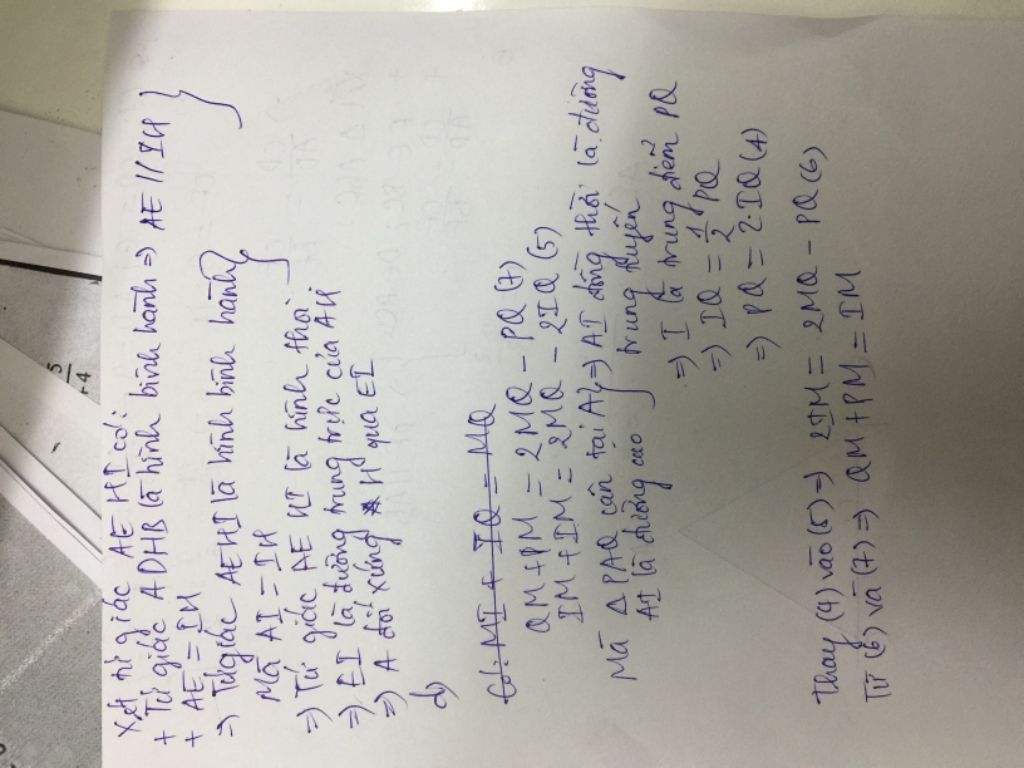 Xét tứ giác AEHI có:
+ Tứ giác ADHB là hình bình hành => AE // IH }
+ AE = IH
=> Tứ giác AEHI là hình bình hành }
Mà AI = IH
=> Tứ giác AEHI là hình thoi
=> EI là đường trung trực của AH
=> A đối xứng H qua EI
d)
Có: MI + IQ = MQ
QM + PM = 2MQ - PQ (7)
IM + IM = 2MQ - 2IQ (5)
Mà Δ PAQ cân tại A } => AI đồng thời là đường
AI là đường cao } trung tuyến
=> I là trung điểm PQ
=> IQ = 1/2 PQ
=> PQ = 2.IQ (4)
Thay (4) vào (5) => 2IM = 2MQ - PQ (6)
Từ (6) và (7) => QM + PM = IM
5
+4